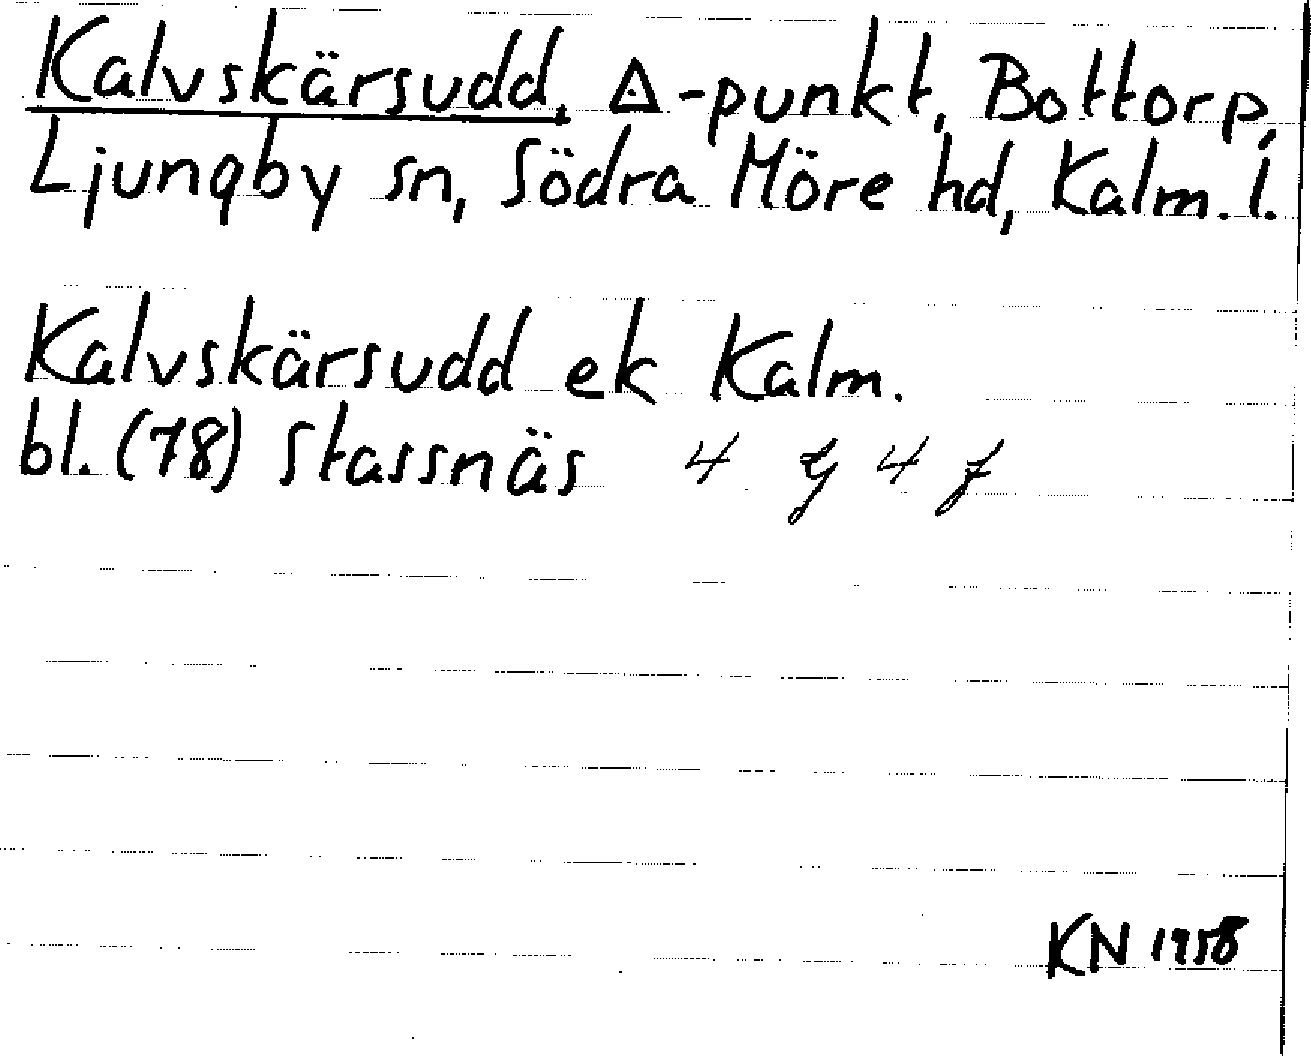 Kalvskärsudd, △-punkt, Bottorp,
Ljungby sn, Södra Möre hd, Kalm. l.
Kalvskärsudd ek Kalm.
bl. (78) Stassnäs 4 G 4 f
KN 1958